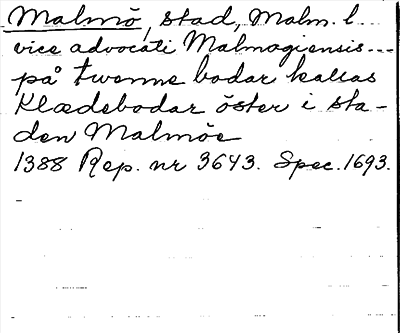 Malmö, stad, Malm. l...
vice advocati Malmogiensis...
på twenne bodar kallas
Klædebodar öster i sta-
den Malmöe
1388 Rep. nr 3643. Spec. 1693.